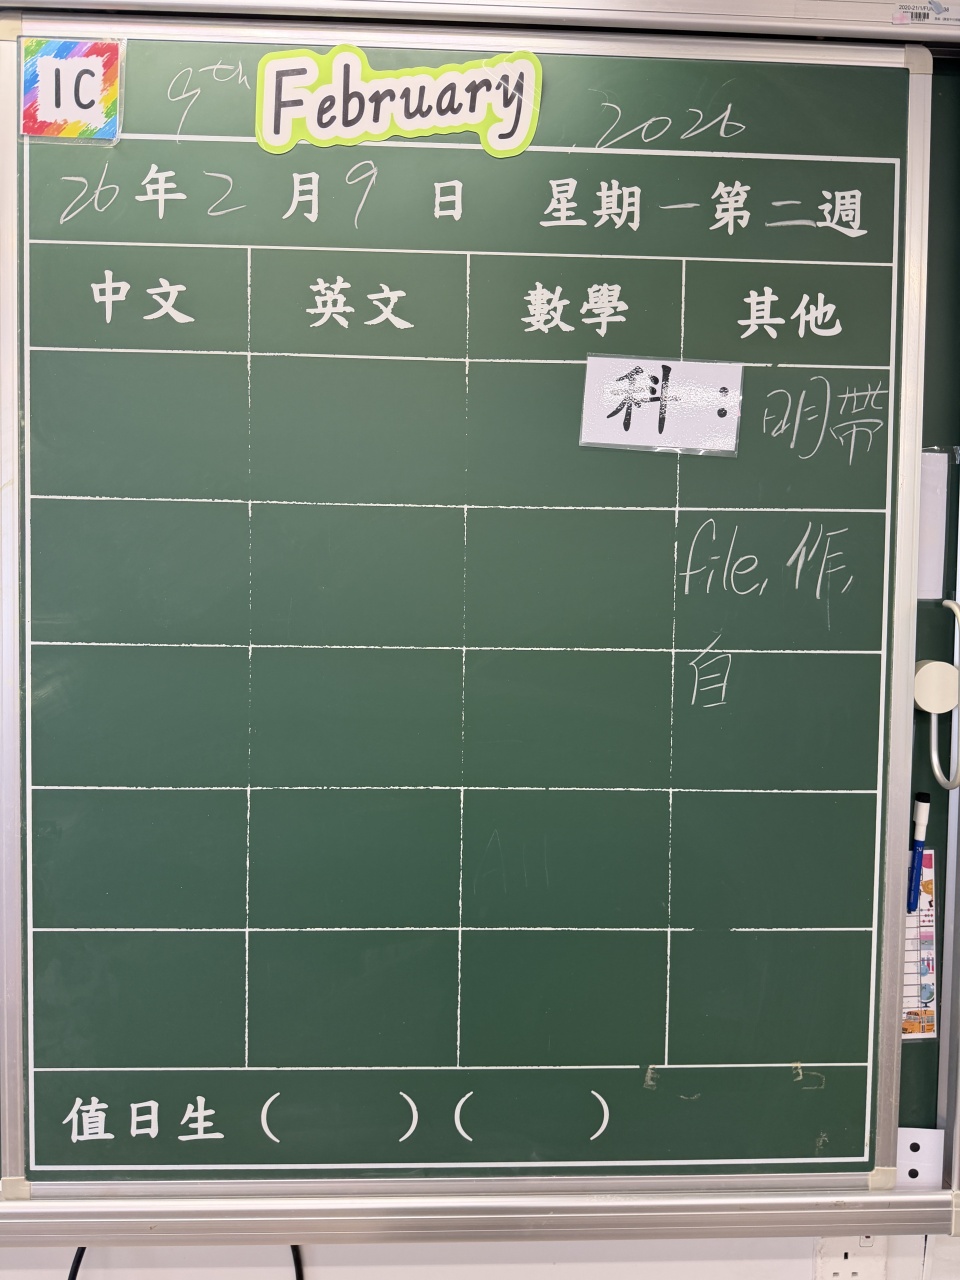 1C
9th February, 2026
26年2月9日 星期一第二週
中文 英文 數學 其他
科：明帶
file, 作,
自
All
值日生（ ）（ ）